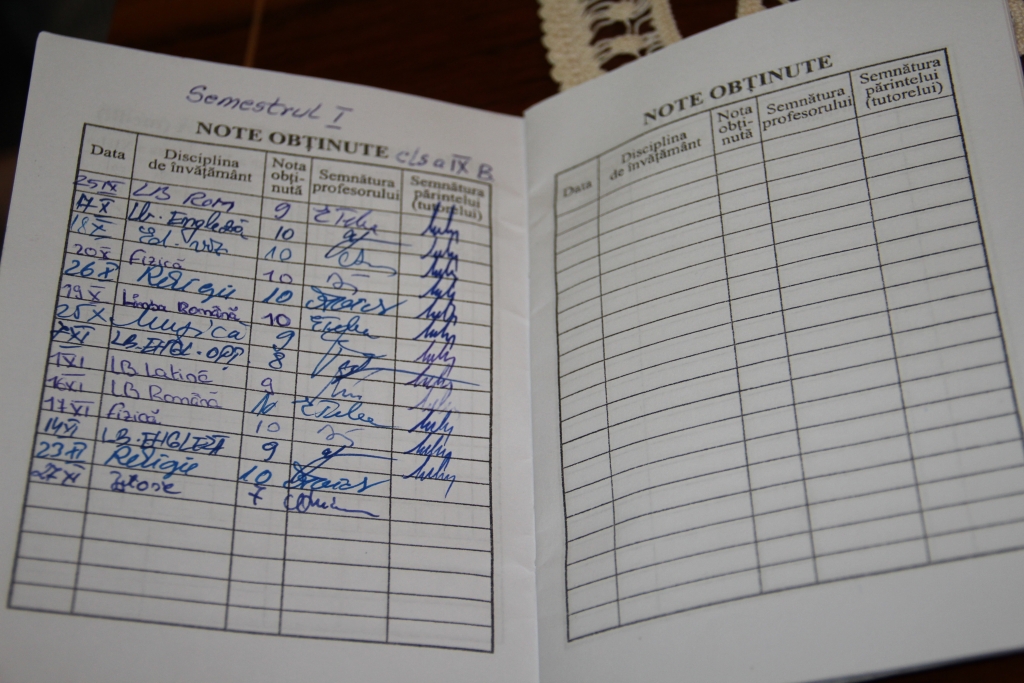 Semestrul I
NOTE OBȚINUTE cls a IX B
Data Disciplina de învățământ Nota obți-nută Semnătura profesorului Semnătura părintelui (tutorelui)
25 IX LB Rom 9
17 X Lb. Engleză 10
18 X Ed. 10
20 X Fizică 10
26 XI Religie 10
19 X Limba Română 10
25 X Muzica 9
2 XI LB. ENGL. OPȚ 8
1 XI LB Latină 9
16 XI LB Română
17 XI fizică 10
14 XI LB. ENGLEZĂ 9
23 XI Religie 10
27 XI Istorie 7
NOTE OBȚINUTE
Data Disciplina de învățământ Nota obți-nută Semnătura profesorului Semnătura părintelui (tutorelui)